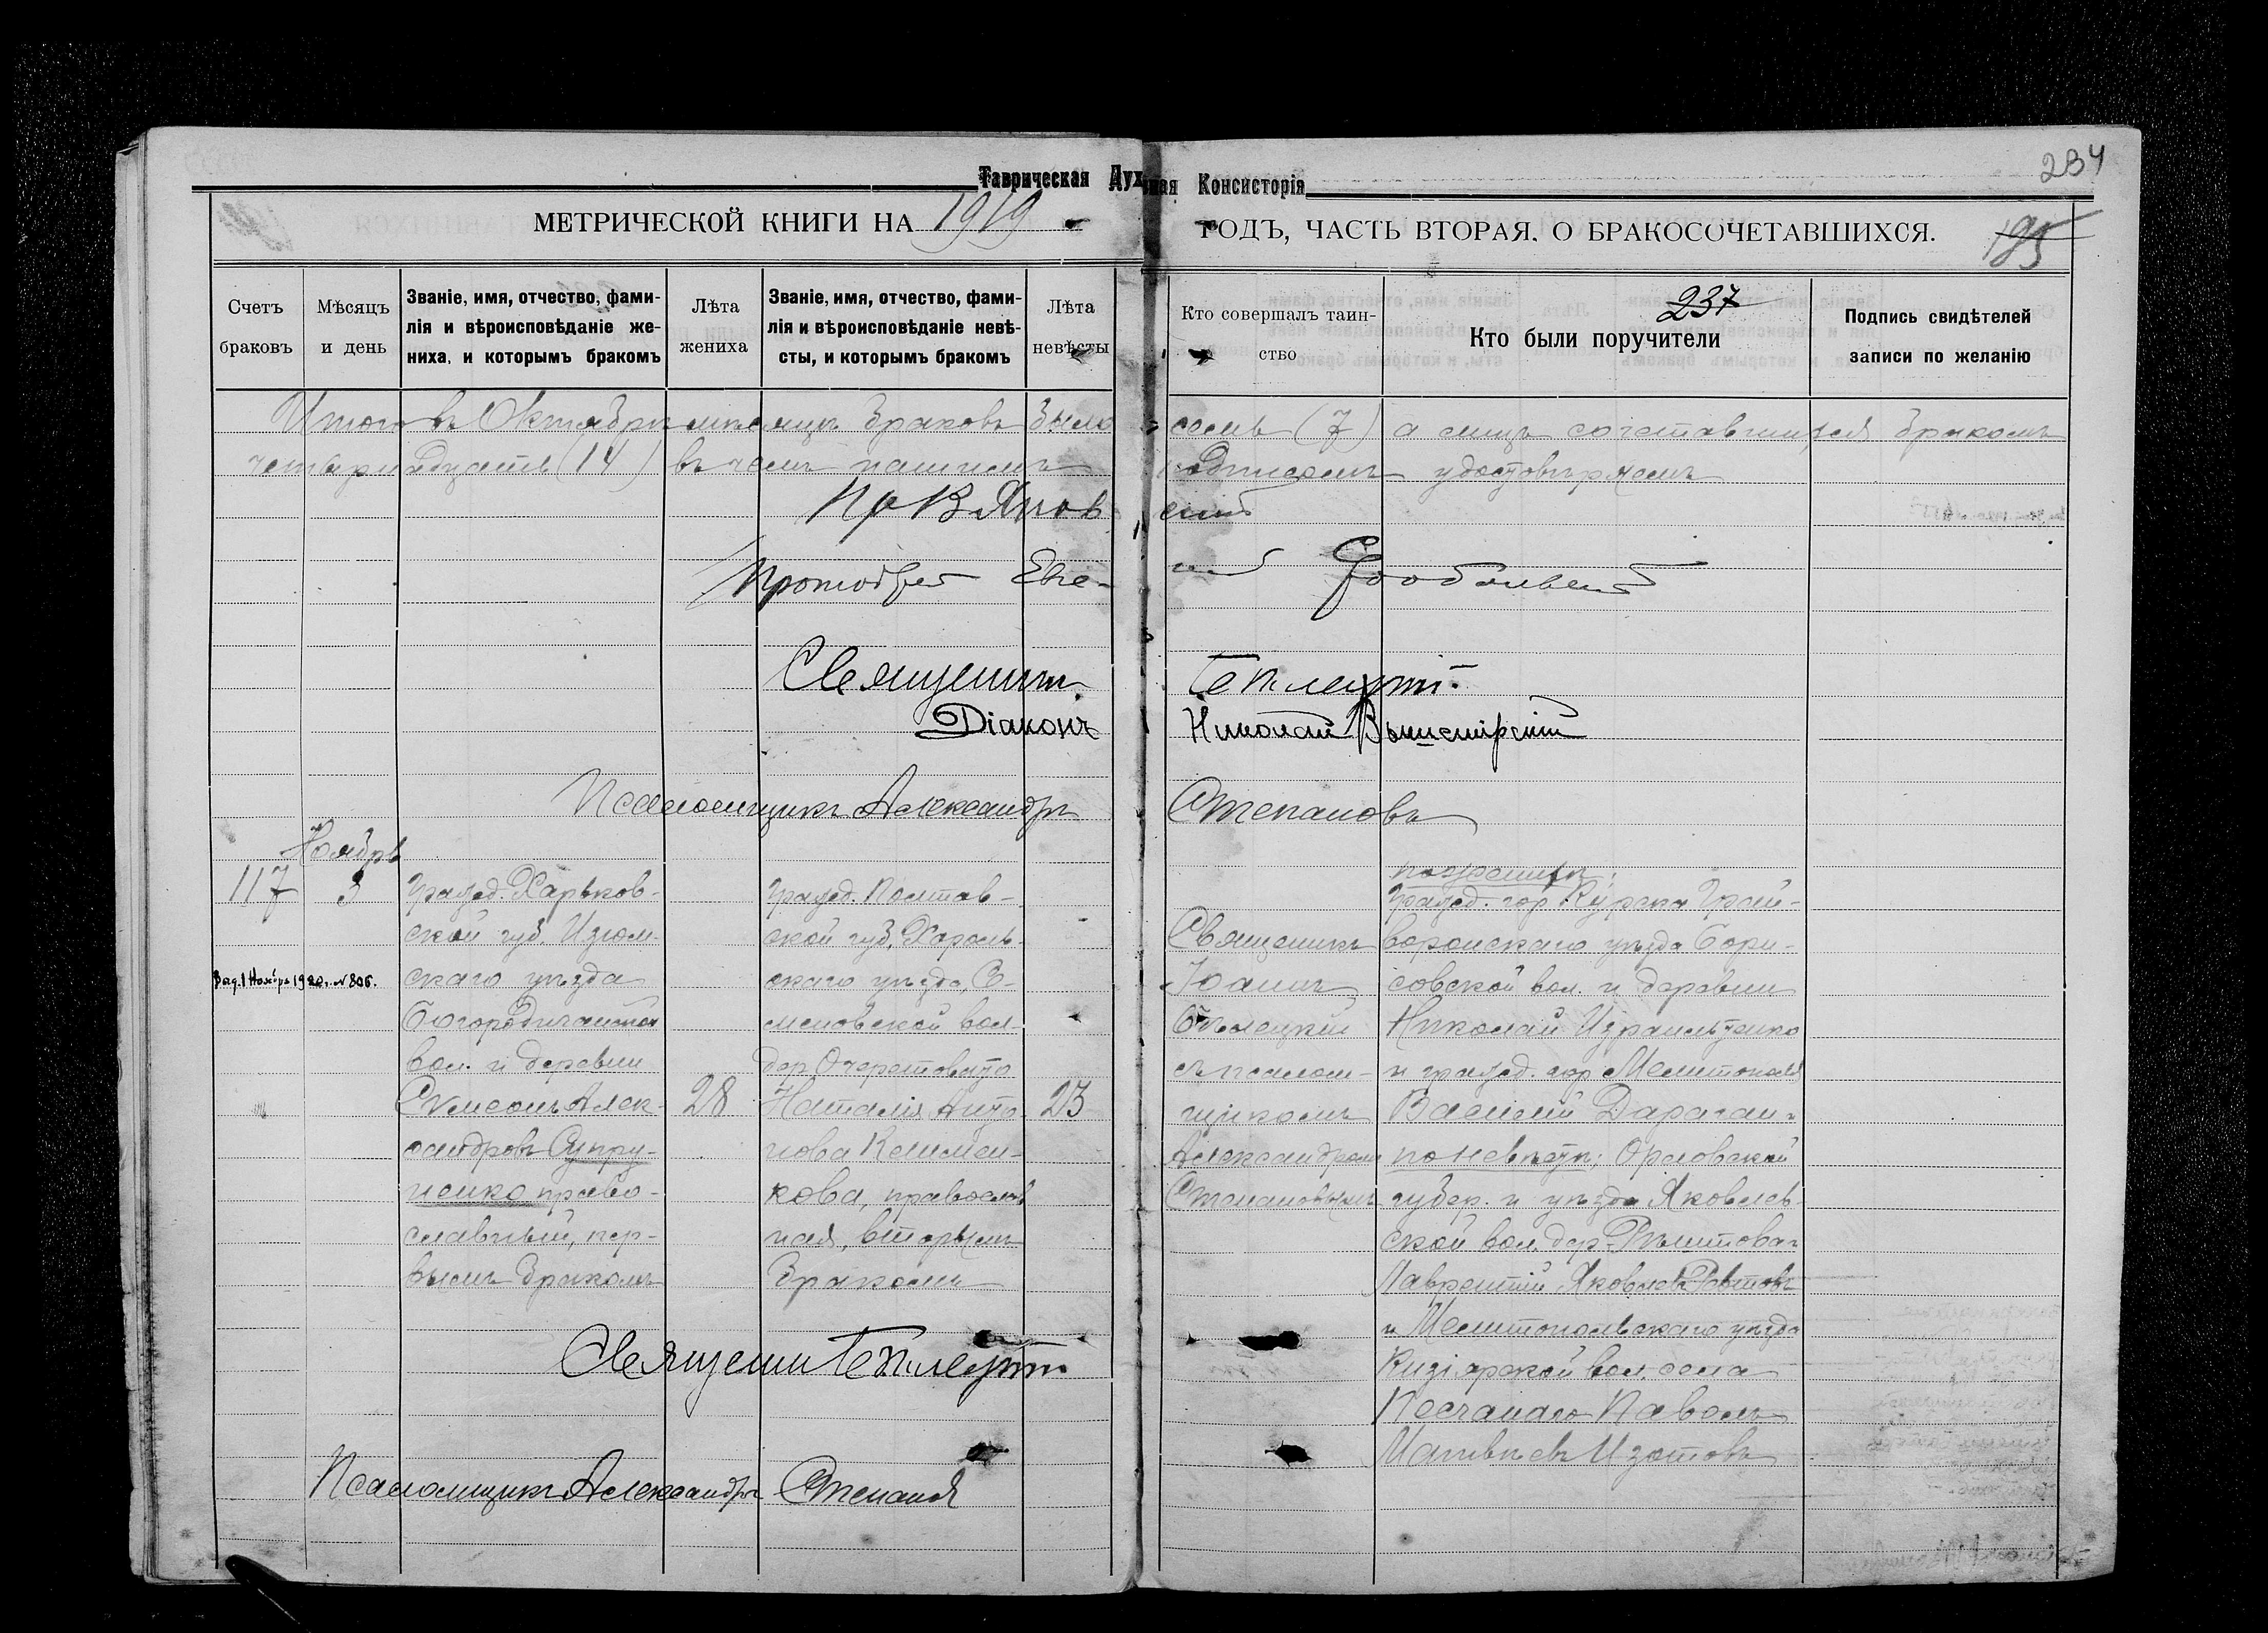 Таврическая Духовная Консисторія
234
МЕТРИЧЕСКОЙ КНИГИ НА 1919 ГОДЪ, ЧАСТЬ ВТОРАЯ, О БРАКОСОЧЕТАВШИХСЯ.
195
Счетъ браковъ
Мѣсяцъ и день
Званіе, имя, отчество, фами-
лія и вѣроисповѣданіе же-
ниха, и которымъ бракомъ
Лѣта жениха
Званіе, имя, отчество, фами-
лія и вѣроисповѣданіе невѣ-
сты, и которымъ бракомъ
Лѣта невѣсты
Кто совершалъ таин-
ство
237
Кто были поручители
Подпись свидѣтелей
записи по желанію
Итого въ Октябрѣ мѣсяцѣ браковъ было семь (7) а лицъ сочетавшихся бракомъ
четырнадцать (14) въ чемъ нашимъ подписомъ удостовѣряемъ
Священник
Діаконъ Николай
Псаломщикъ Александръ Степановъ
Ноябрь
117
3
гражд. Харьков-
ской губ. Изюм-
скаго уѣзда
вол. и деревни
Симеонъ Алек-
сандровъ Супру-
ненко право-
славный, пер-
вымъ бракомъ
Выд. 1 Ноября 1920. № 806.
28
гражд. Полтав-
ской губ. Хороль-
скаго уѣзда, Се-
меновской вол.
дер. Очеретоватo
Наталія Анто-
нова Клименкова, православ
ная, вторымъ
бракомъ
23
Священикъ
Іоаннъ
съ псалом-
щикомъ
Александромъ
Степановымъ
по женихѣ:
гражд. гор Курска Грай-
воронскаго уѣзда Бори-
совской вол. и деревни
Николай Израильтенко
и гражд. гор Мелитополя
Василій Дараган
по невѣстѣ: Орловской
губер. и уѣзда Яковлев-
ской вол. дер.
Лаврентій Яковлевъ
и Мелитопольскаго уѣзда
Кизіярской вол. села
Песчанаго Павелъ
Матвѣевъ Изотовъ
Священик
Псаломщикъ Александръ Степанов